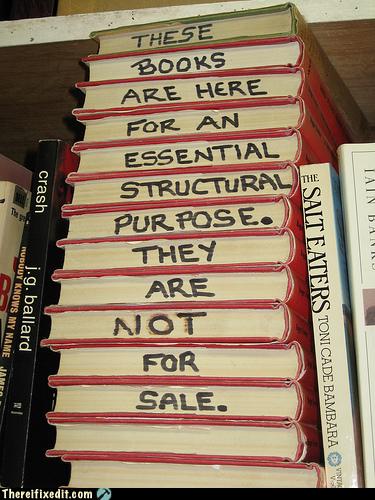 THESE
BOOKS
ARE HERE
FOR AN
ESSENTIAL
STRUCTURAL
PURPOSE.
THEY
ARE
NOT
FOR
SALE.
crash
j.g. ballard
NOBODY KNOWS MY NAME JAMES
THE
SALT EATERS
TONI CADE BAMBARA
IAIN BANKS
Thereifixedit.com